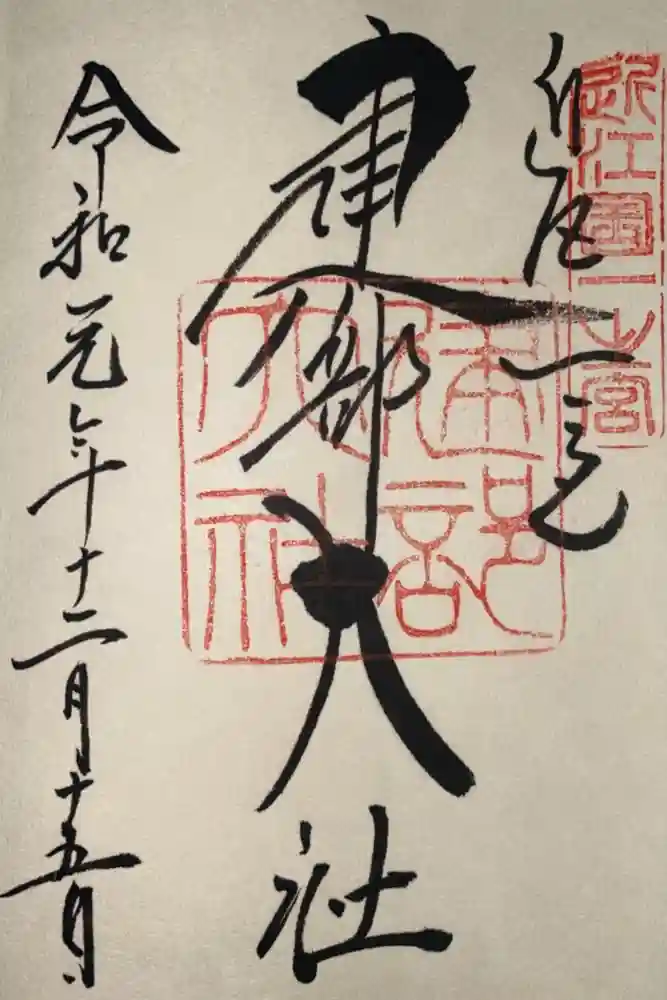 近江一宮
近江國一之宮
建部大社
建部
大社
令和元年十二月十五日